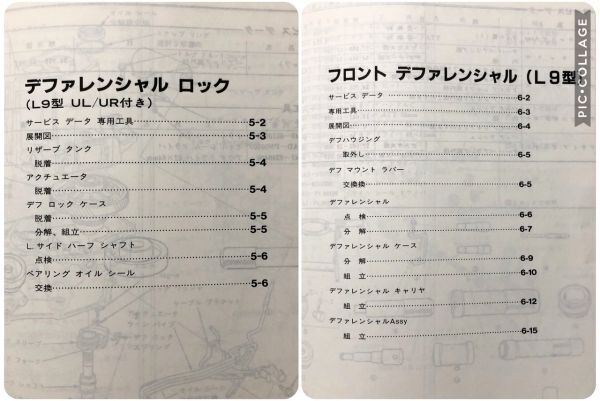 デファレンシャル ロック
(L9型 UL/UR付き)
サービス データ 専用工具 5-2
展開図 5-3
リザーブ タンク
脱着 5-4
アクチュエータ
脱着 5-4
デフ ロック ケース
脱着 5-5
分解、組立 5-5
L サイド ハーフ シャフト
点検 5-6
ベアリング オイル シール
交換 5-6
フロント デファレンシャル (L9型
サービス データ 6-2
専用工具 6-3
展開図 6-4
デフハウジング
取外し 6-5
デフ マウント ラバー
交換換 6-5
デファレンシャル
点 検 6-6
分 解 6-7
デファレンシャル ケース
分 解 6-9
組 立 6-10
デファレンシャル キャリヤ
組 立 6-12
デファレンシャルAssy
組 立 6-15
PIC•COLLAGE